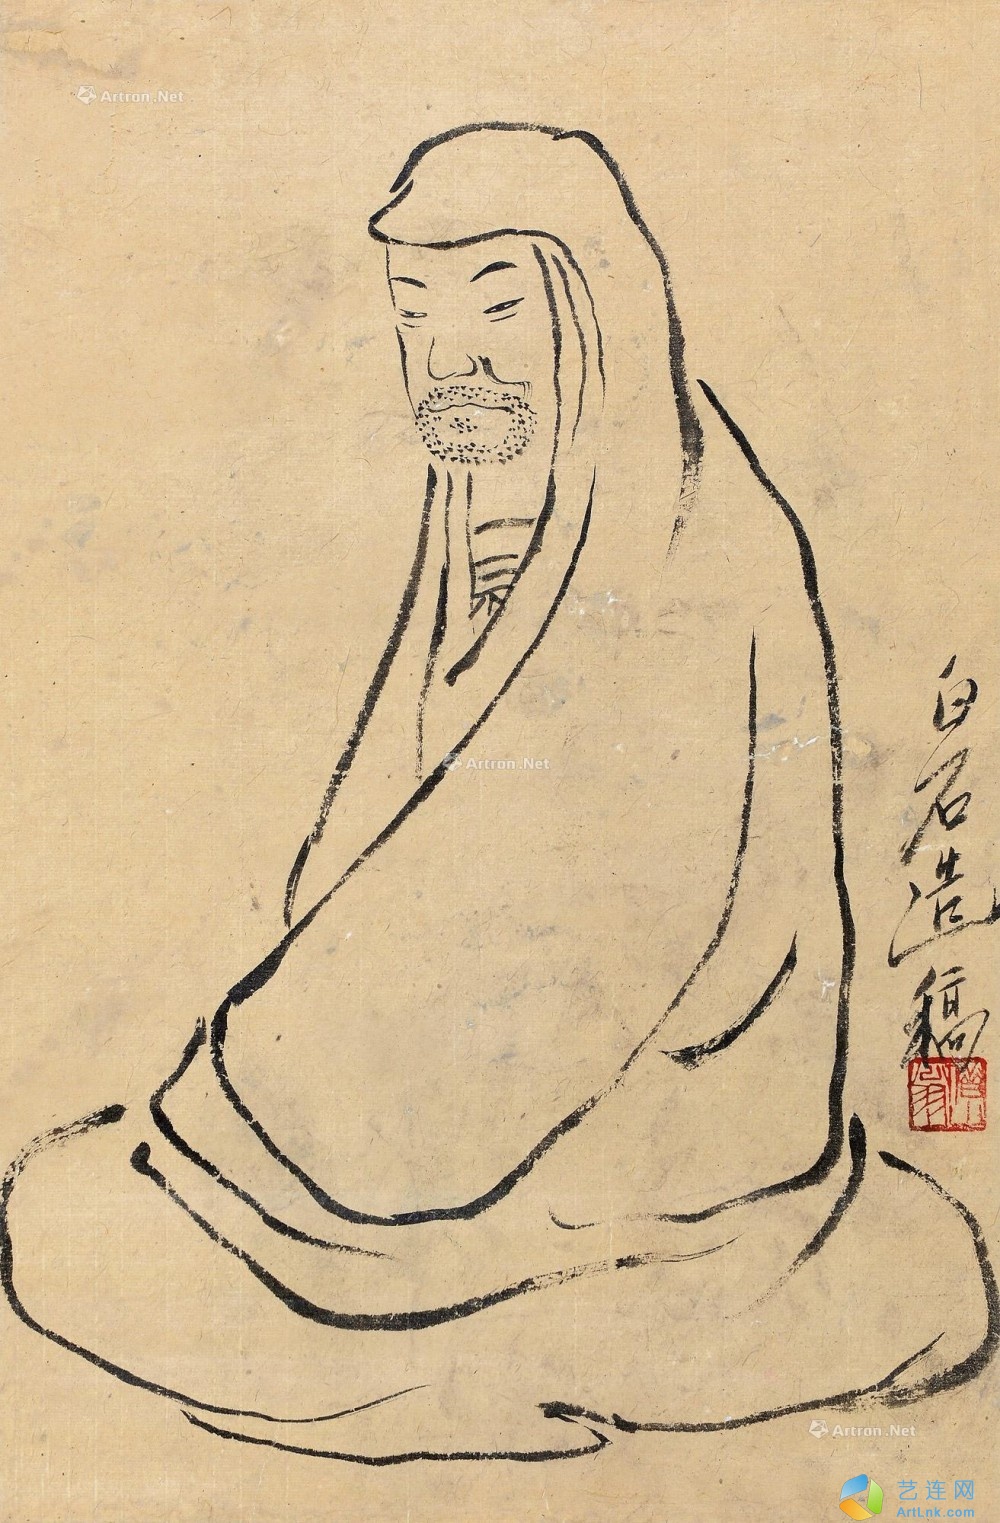 Artron.Net
白石造稿
Artron.Net
Artron.Net
艺连网
ArtLnk.com